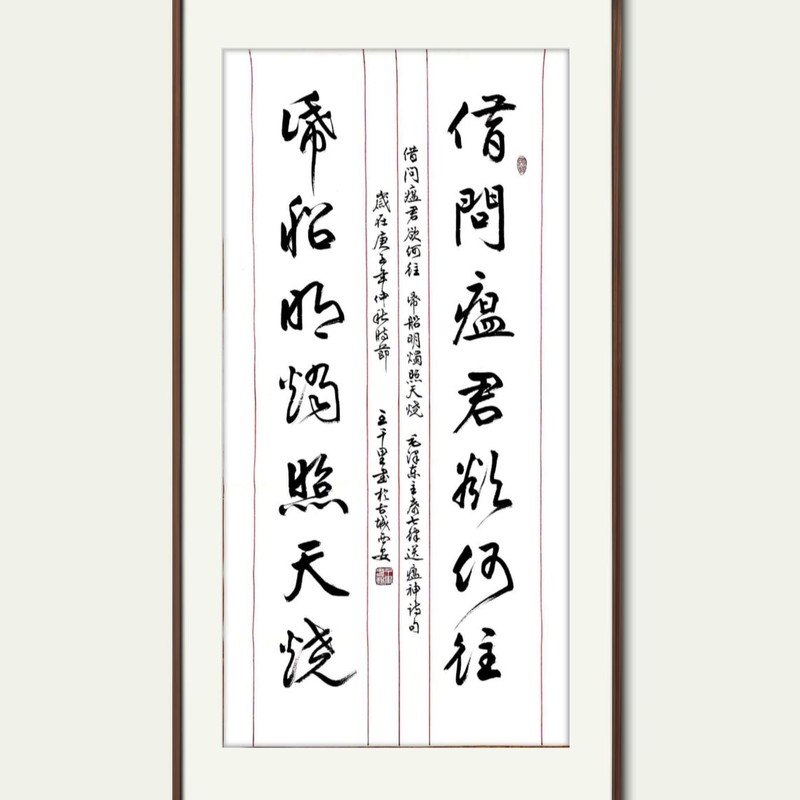 借問瘟君欲何往
借问瘟君欲何往 帋船明燭照天烧 毛泽东主席七律送瘟神诗句
歲在庚子年仲秋時節 王千里書於古城西安
帋船明燭照天烧